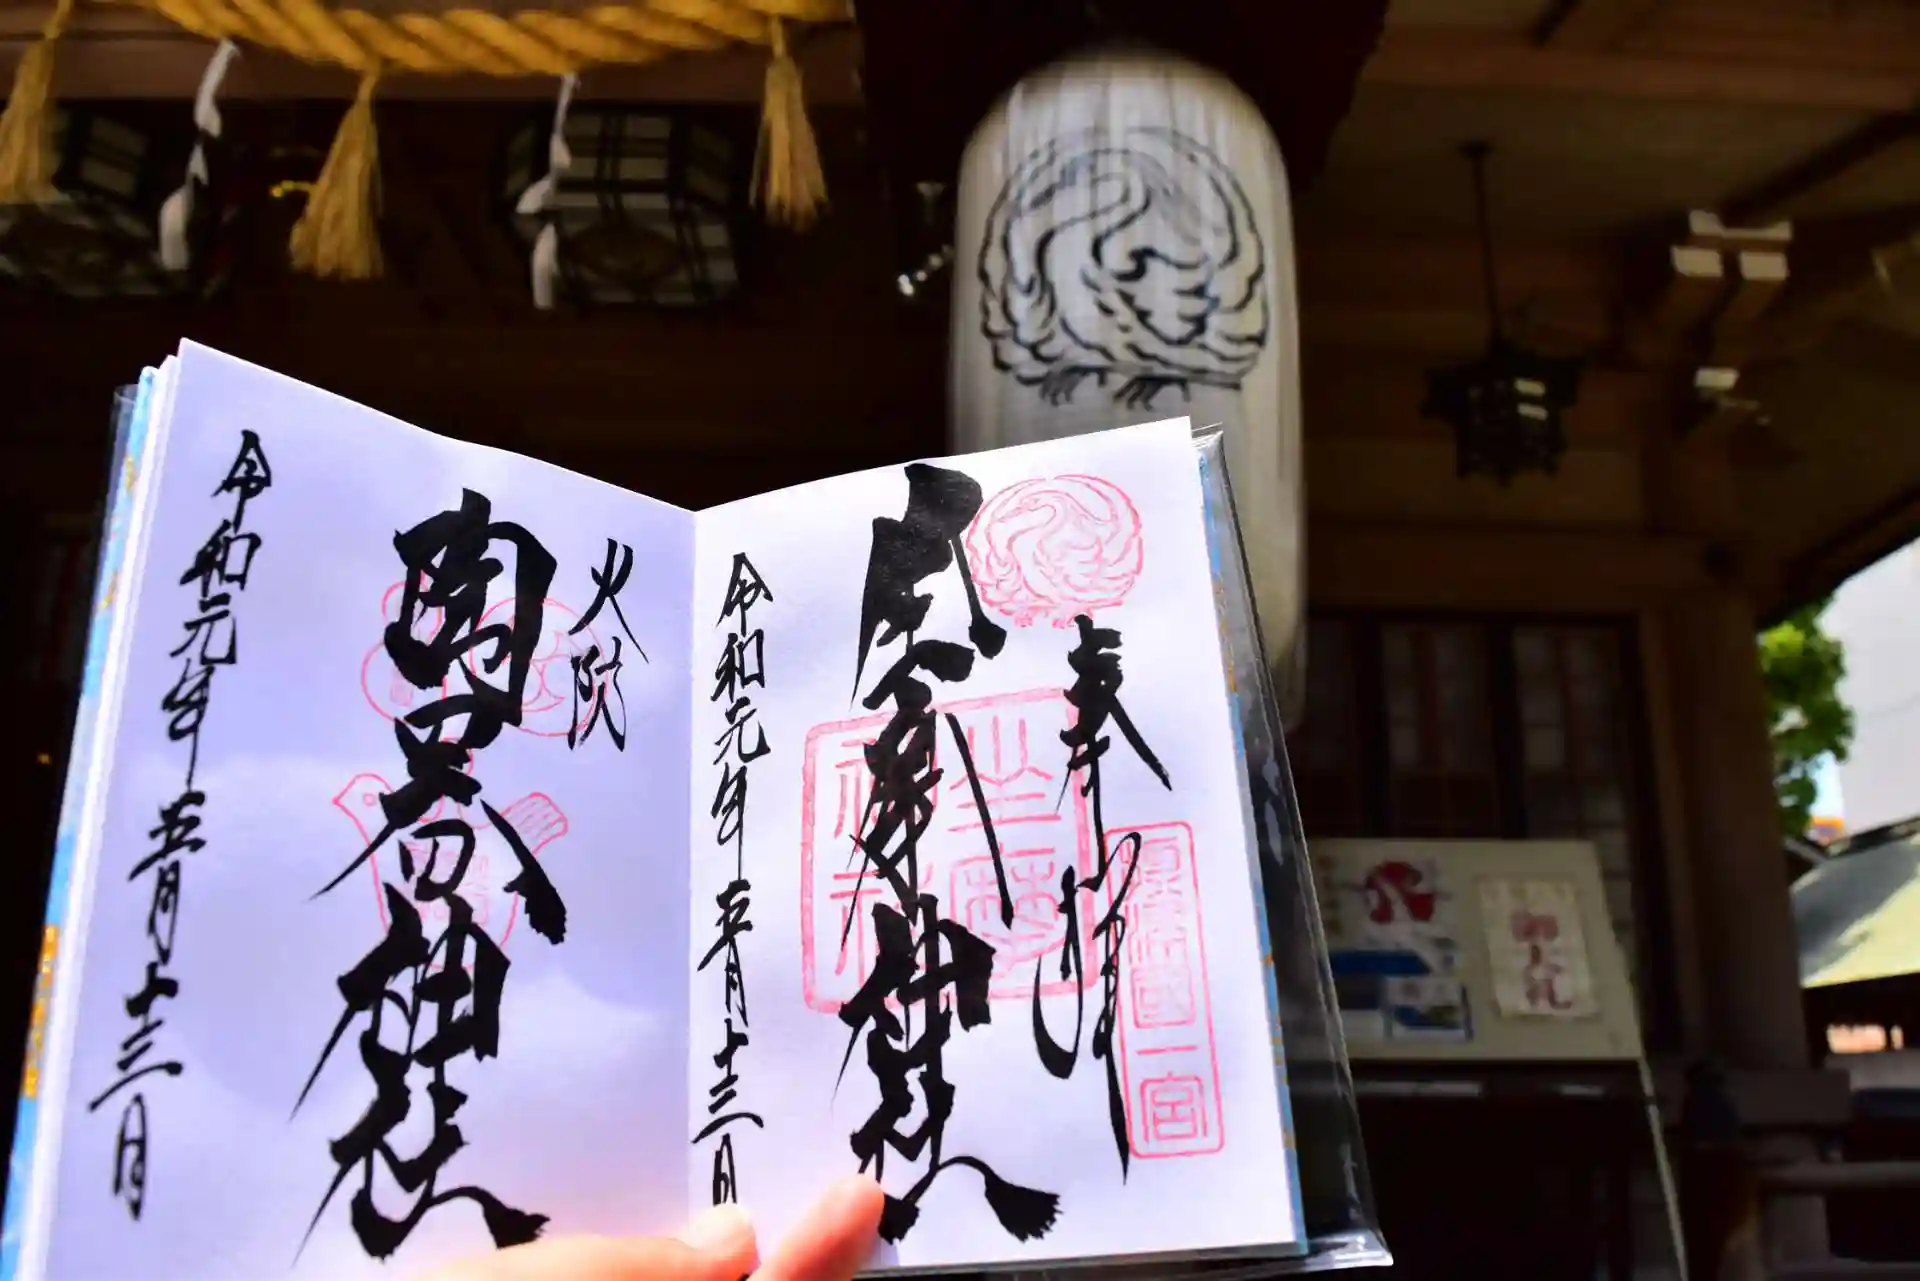 奉拝
攝津國一宮
坐摩神社
坐摩神社
令和元年五月十三日
火防
陶器神社
令和元年五月十三日